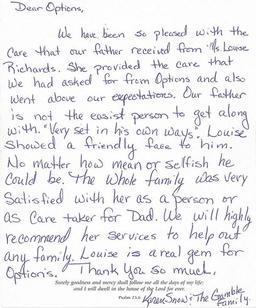 Dear Options,
We have been so pleased with the
care that our father received from Ms Louise
Richards. She provided the care that
we had asked for from Options and also
went above our expectations. Our father
is not the easist person to get along
with. "Very set in his own ways". Louise
showed a friendly face to him.
No matter how mean or selfish he
could be. The whole family was very
satisfied with her as a person or
as care taker for Dad. We will highly
recommend her services to help out
any family. Louise is a real gem for
Options. Thank you so much,
Surely goodness and mercy shall follow me all the days of my life:
and I will dwell in the house of the Lord for ever.
Psalm 23:6
Snow & The Gamble
Family.